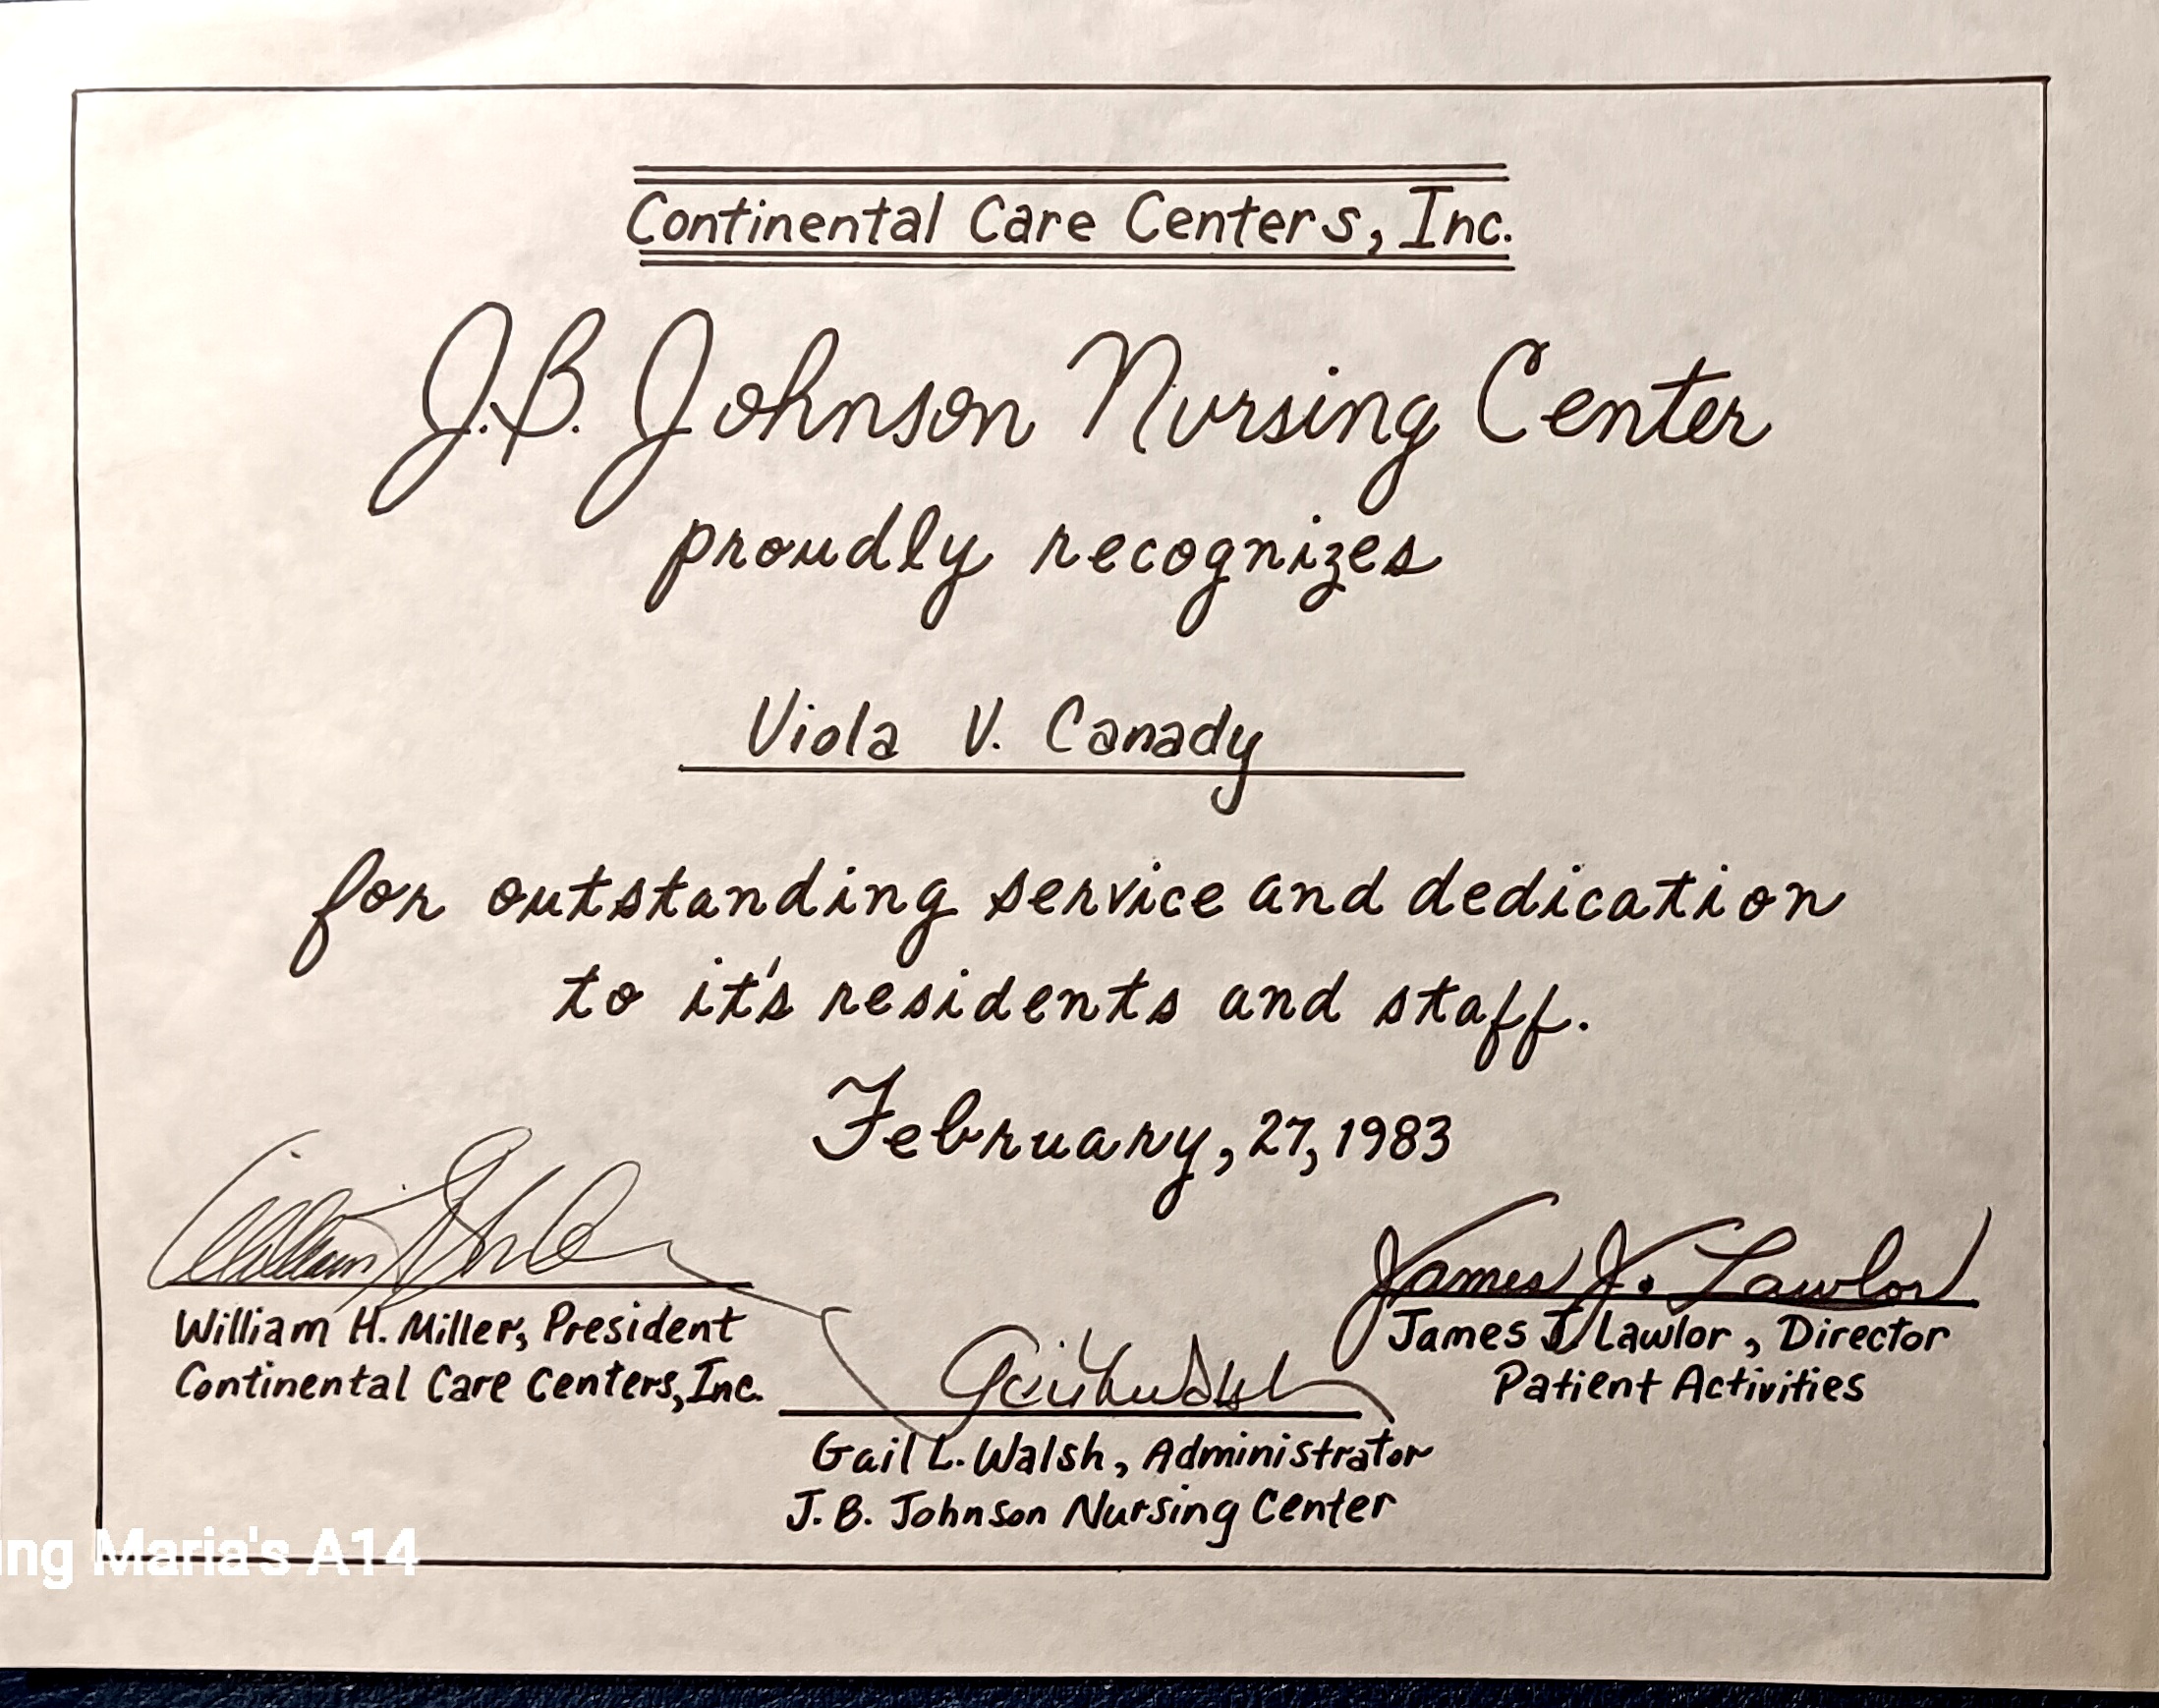 Continental Care Centers, Inc.
J.B. Johnson Nursing Center
proudly recognizes
Viola V. Canady
for outstanding service and dedication
to it's residents and staff.
February, 27, 1983
William H. Miller
William H. Miller, President
Continental Care Centers, Inc.
James J. Lawlor
James J. Lawlor, Director
Patient Activities
Gail L. Walsh
Gail L. Walsh, Administrator
J.B. Johnson Nursing Center
ng Maria's A14